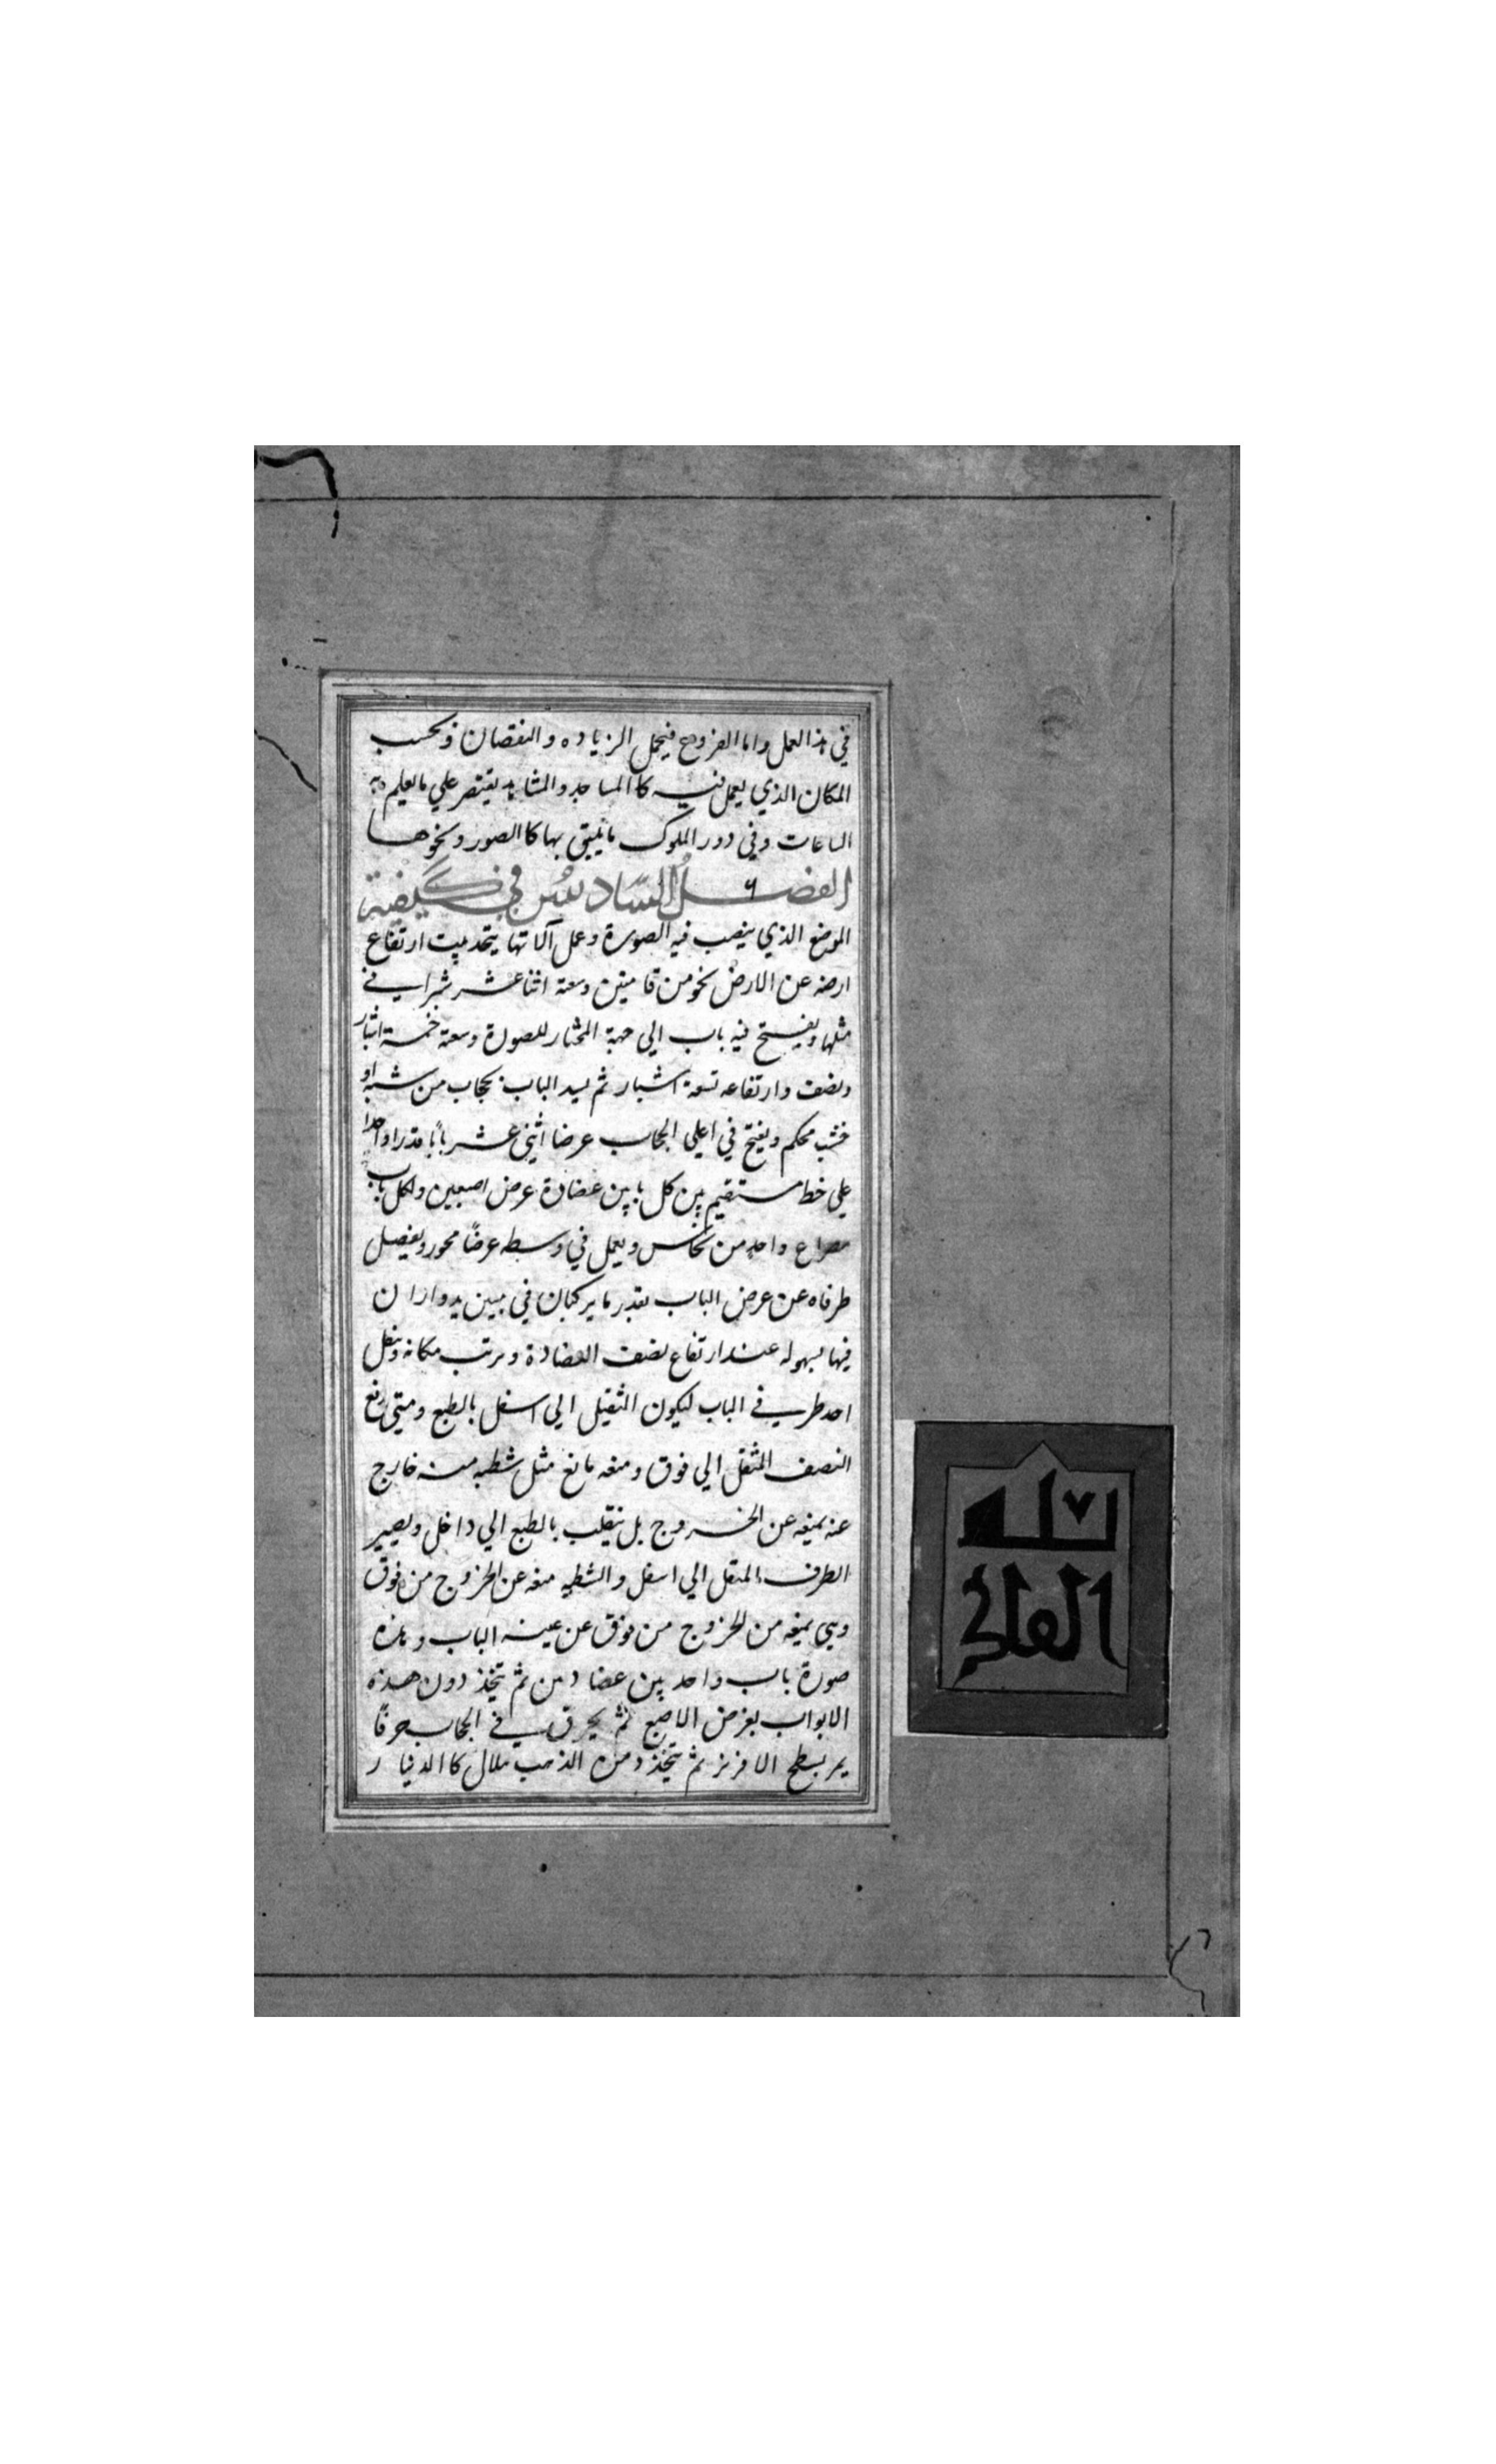 في هذا العمل واما الفروع فيحمل الزياده والنقصان وبحسب
المكان الذي يعمل فيه كالمساجد والمشاهد يقتصر علي ما يعلم به
الساعات وفي دور الملوك ما يليق بها كالصور ونحوها
الفصل السادس في كيفية
الموضع الذي ينصب فيه الصورة وعمل آلاتها يتخذ بيت ارتفاع
ارضه عن الارض نحو من قامتين وسعته اثنا عشر شبرا في
مثلها ويفتح فيه باب الي جهة المختار للصورة وسعته خمسة اشبار
ونصف وارتفاعه تسعة اشبار ثم يسد الباب بحجاب من شبه او
خشب محكم ويفتح في اعلي الحجاب عرضا اثني عشر بابا قدرا واحدا
علي خط مستقيم بين كل بابين عضادة عرض اصبعين ولكل باب
مصراع واحد من نحاس ويعمل في وسطه عرضا محور ويفضل
طرفاه عن عرض الباب بقدر ما يركبان في بيتين يدوران
فيها بسهوله عند ارتفاع نصف العضادة ومرتب مكانه ويثقل
احد طرفي الباب ليكون الثقيل الي اسفل بالطبع ومتي رفع
النصف المثقل الي فوق ومنعه مانع مثل شطبه منه خارج
عنه يمنعه عن الخروج بل ينقلب بالطبع الي داخل ويصير
الطرف المثقل الي اسفل والشطبه منعه عن الخروج من فوق
وهي يمنعه من الخروج من فوق عن عينه الباب وهذه
صورة باب واحد بين عضادتين ثم يتخذ دون هذه
الابواب بعرض الاصبع ثم يخرق في الحجاب خرقا
يمر بسطح الافريز ثم يتخذ من الذهب هلال كالدينار